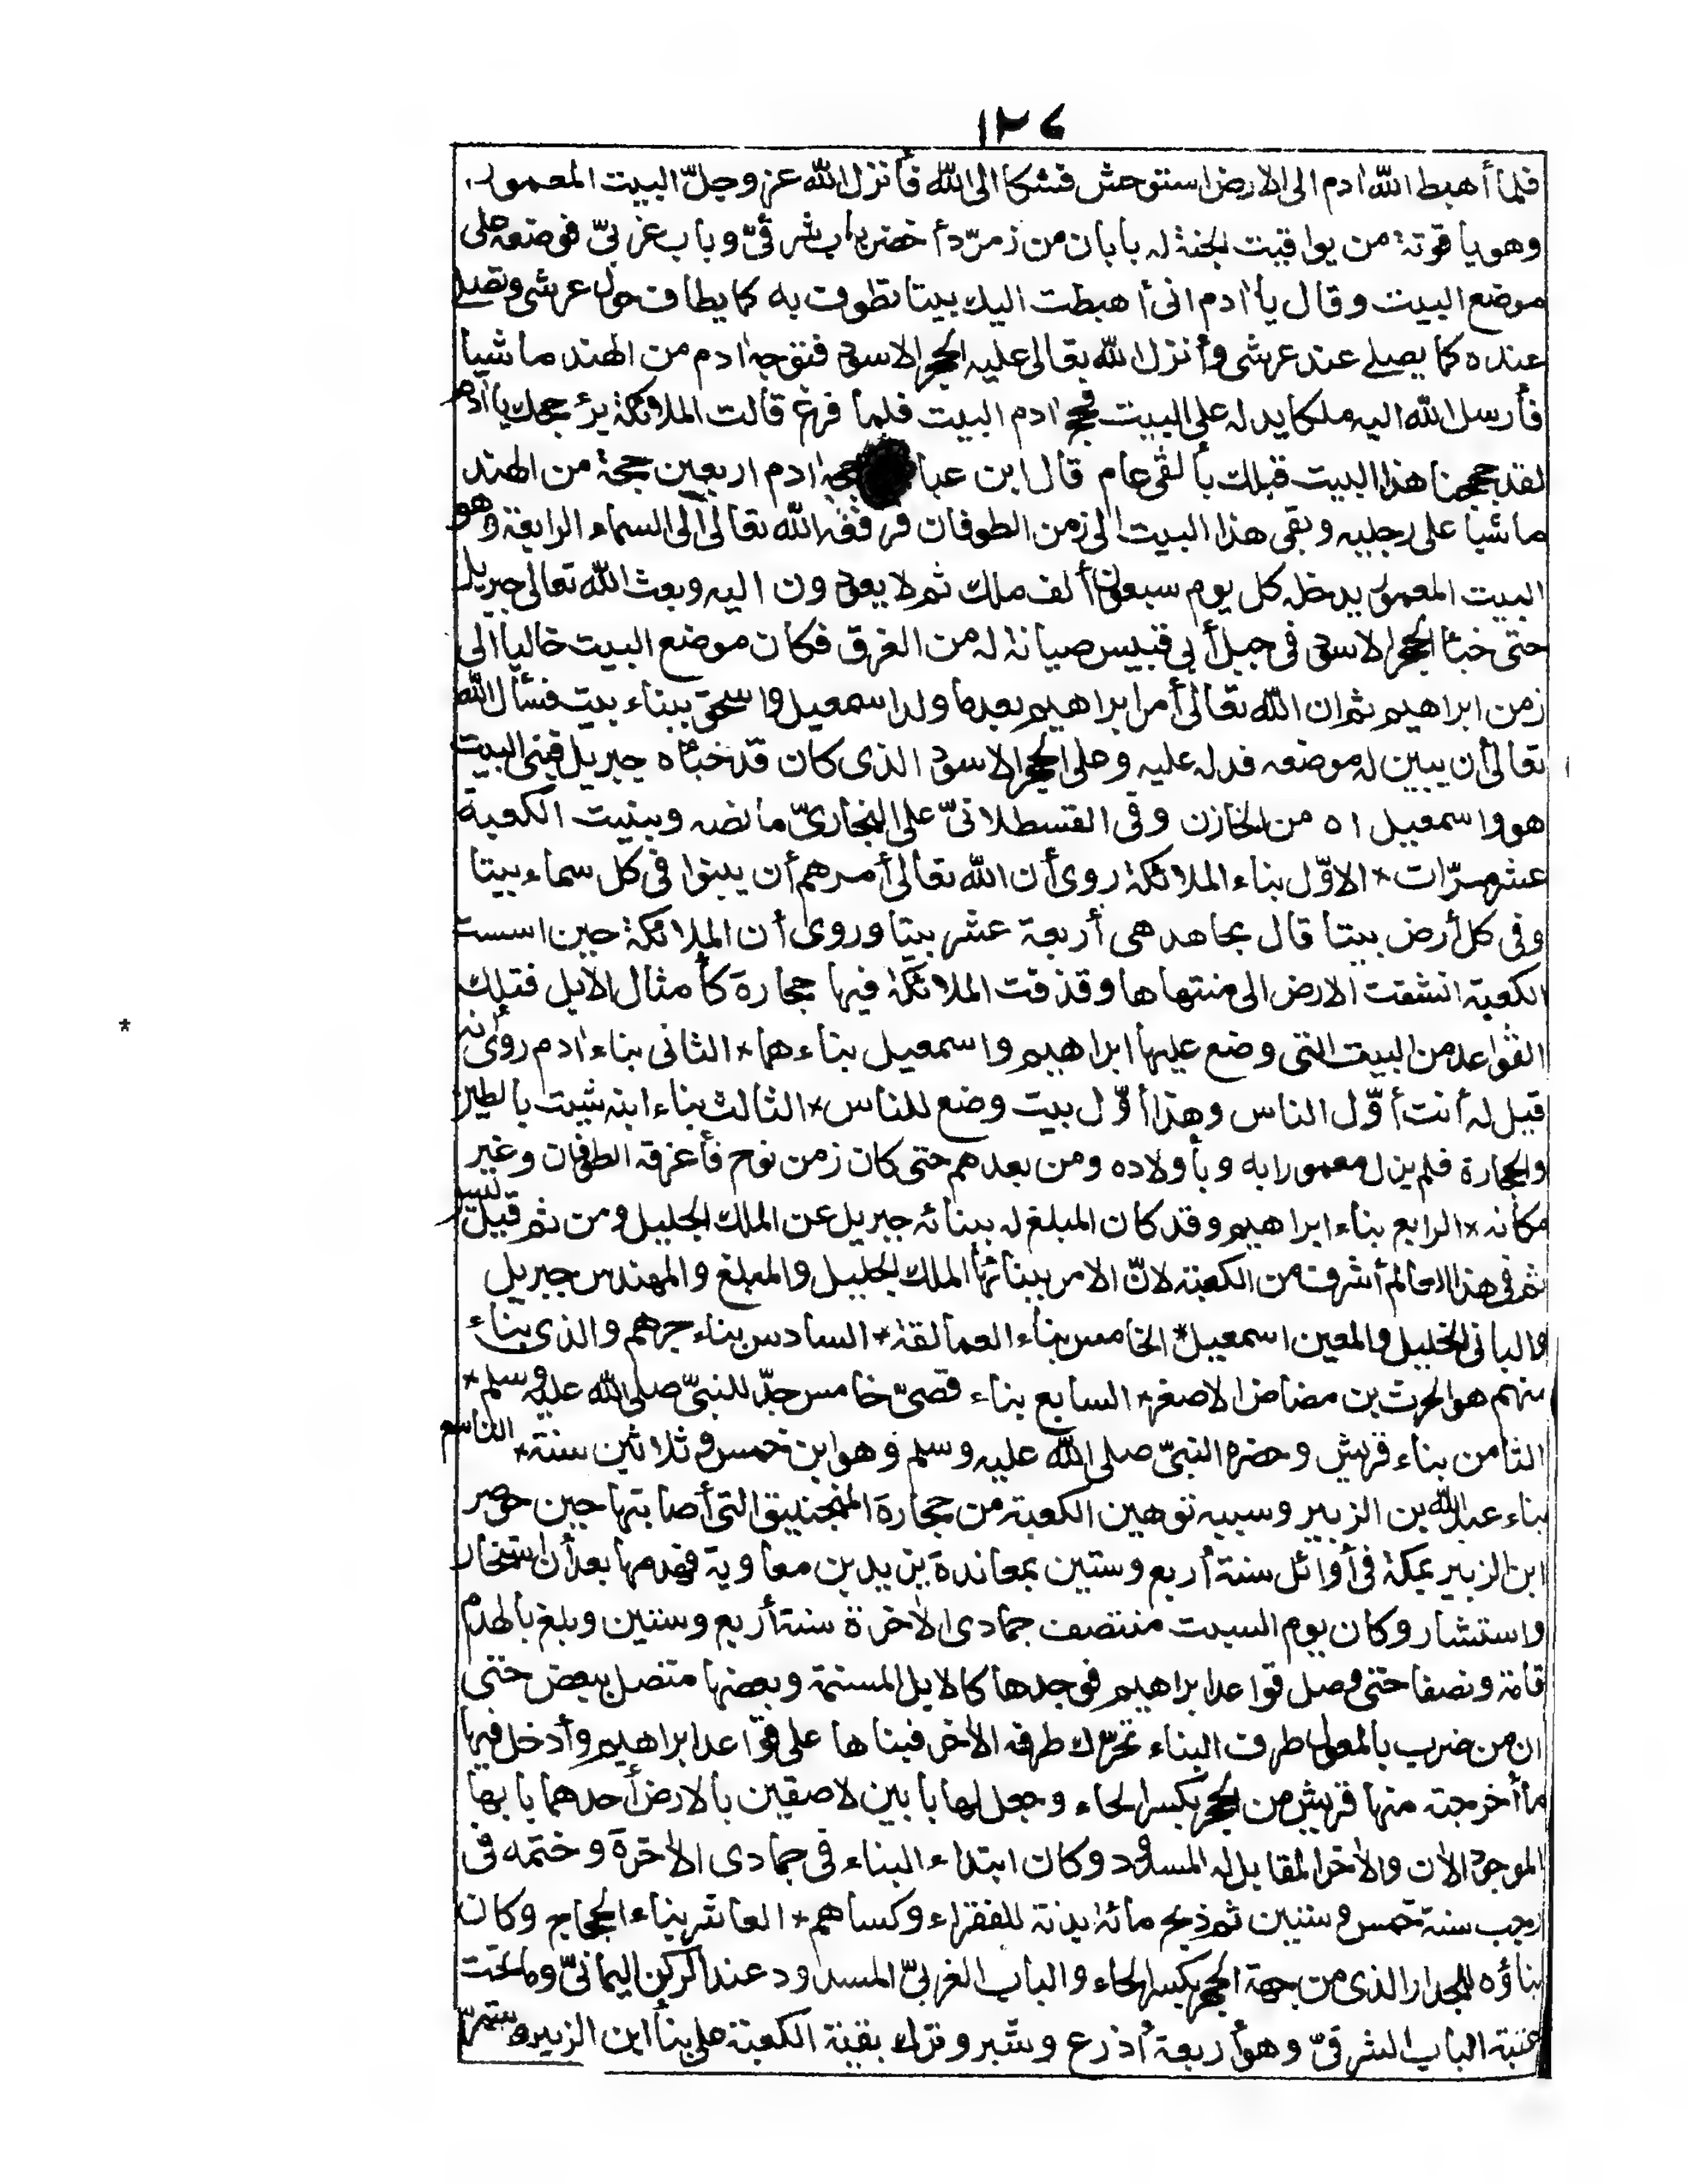 ١٢٦
فلما أهبط الله ادم الى الارض استوحش فشكا الى الله فأنزل الله عز وجلّ البيت المعمور
وهو ياقوتة من يواقيت الجنة له بابان من زمرّد أخضر باب شرقىّ وباب غربىّ فوضعه على
موضع البيت وقال يا ادم انى أهبطت اليك بيتا تطوف به كما يطاف حول عرشى وتصلى
عنده كما يصلى عند عرشى وأنزل الله تعالى عليه الحجر الاسود فتوجه ادم من الهند ماشيا
فأرسل الله اليه ملكا يدله على البيت فحج ادم البيت فلما فرغ قالت الملائكة برّ حجك يا أدم
لقد حججنا هذا البيت قبلك بألفى عام قال ابن عباس حج ادم اربعين حجة من الهند
ماشيا على رجليه وبقى هذا البيت الى زمن الطوفان فرفعه الله تعالى الى السماء الرابعة وهو
البيت المعمور يدخله كل يوم سبعون ألف ملك ثم لا يعودون اليه وبعث الله تعالى جبريل
حتى خبأ الحجر الاسود فى جبل أبى قبيس صيانة له من الغرق فكان موضع البيت خاليا الى
زمن ابراهيم ثم ان الله تعالى أمر ابراهيم بعدما ولد اسمعيل واسحق ببناء بيت فسأل الله
تعالى أن يبين له موضعه فدله عليه وعلى الحجر الاسود الذى كان قد خبأه جبريل فبنى البيت
هو واسمعيل اه من الخازن وفى القسطلانىّ على البخارىّ ما نصه وبنيت الكعبة
عشر مرّات * الاوّل بناء الملائكة روى أن الله تعالى أمرهم أن يبنوا فى كل سماء بيتا
وفى كل أرض بيتا قال مجاهد هى أربعة عشر بيتا وروى أن الملائكة حين اسست
الكعبة انشقت الارض الى منتهاها وقذفت الملائكة فيها حجارة كأمثال الابل فتلك
القواعد من البيت التى وضع عليها ابراهيم واسمعيل بناءهما * الثانى بناء ادم روى أنه
قيل له أنت أوّل الناس وهذا أوّل بيت وضع للناس * الثالث بناء ابنه شيت بالطين
والحجارة فلم يزل معمورا به وبأولاده ومن بعدهم حتى كان زمن نوح فأغرقه الطوفان وغير
مكانه * الرابع بناء ابراهيم وقد كان المبلغ له ببنائه جبريل عن الملك الجليل ومن ثم قيل ليس
ثم فى هذا العالم أشرف من الكعبة لانّ الامر ببنائها الملك الجليل والمبلغ والمهندس جبريل
والبانى الخليل والمعين اسمعيل * الخامس بناء العمالقة * السادس بناء جرهم والذى بناء
منهم هو الحرث بن مضاض الاصغر * السابع بناء قصىّ خامس جدّ للنبىّ صلى الله عليه وسلم *
الثامن بناء قريش وحضره النبىّ صلى الله عليه وسلم وهو ابن خمس وثلاثين سنة * التاسع
بناء عبد الله بن الزبير وسببه توهين الكعبة من حجارة المنجنيق التى أصابتها حين حوصر
ابن الزبير بمكة فى أوائل سنة أربع وستين بمعاندة يزيد بن معاوية فهدمها بعد أن استخار
واستشار وكان يوم السبت منتصف جمادى الاخرة سنة أربع وستين وبلغ بالهدم
قامة ونصفا حتى وصل قواعد ابراهيم فوجدها كالابل المسنمة وبعضها متصل ببعض حتى
ان من ضرب بالمعول طرف البناء تحرّك طرفه الاخر فبناها على قواعد ابراهيم وأدخل فيها
ما أخرجته منها قريش من الحجر بكسر الحاء وجعل لها بابين لاصقين بالارض أحدهما بابها
الموجود الان والاخر المقابل له المسدود وكان ابتداء البناء فى جمادى الاخرة وختمه فى
رجب سنة خمس وستين ثم ذبح مائة بدنة للفقراء وكساهم * العاشر بناء الحجاج وكان
بناؤه للجدار الذى من جهة الحجر بكسر الحاء والباب الغربىّ المسدود عند الركن اليمانىّ وما تحت
عتبة الباب الشرقىّ وهو أربعة أذرع وشبر وترك بقية الكعبة على بنأ ابن الزبير واستمرّ
*